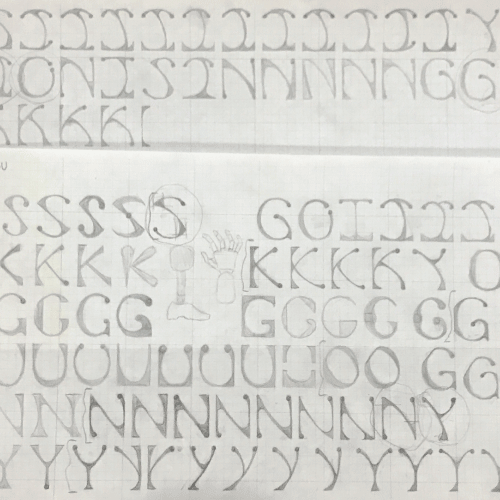 SIIIIIIIIIIIY
IONISINNNNNGG
KKKKI
U
SSSSS GOIIII
KKKK KKKKYO
GGGG GGGGGG
UUUUUUU OO GG
NNNNNNNNNNY
YYYYYYYYYYYY